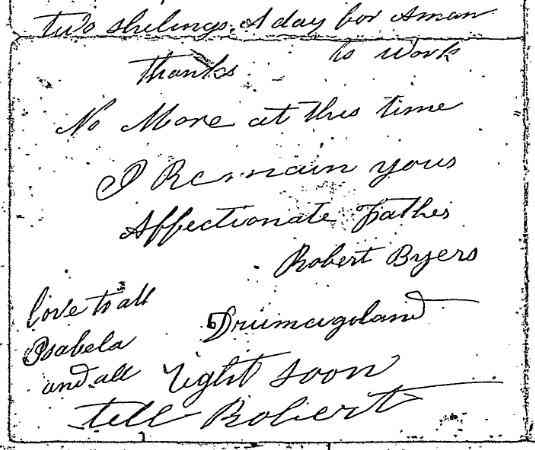 two shilings A day for A man
to work
thanks
No More at this time
I Remain yous
Affectionate Father
Robert Byers
love to all
Isabela
and all
Drumagoland
right soon
tell Robert